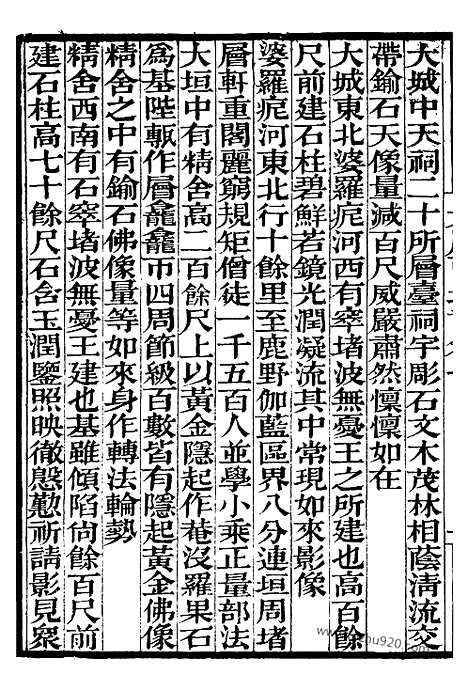 大城中天祠二十所層臺祠宇彫石文木茂林相蔭清流交
帶鍮石天像量減百尺威嚴肅然懍懍如在
大城東北婆羅痆河西有窣堵波無憂王之所建也高百餘
尺前建石柱碧鮮若鏡光潤凝流其中常現如來影像
婆羅痆河東北行十餘里至鹿野伽藍區界八分連垣周堵
層軒重閣麗窮規矩僧徒一千五百人並學小乘正量部法
大垣中有精舍高二百餘尺上以黃金隱起作菴沒羅果石
爲基陛甎作層龕龕帀四周節級百數皆有隱起黃金佛像
精舍之中有鍮石佛像量等如來身作轉法輪勢
精舍西南有石窣堵波無憂王建也基雖傾陷尙餘百尺前
建石柱高七十餘尺石含玉潤鑒照映徹慇懃祈請影見衆